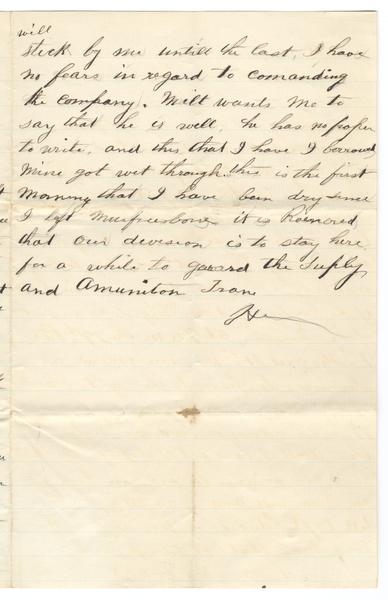 will
stick by me untill the last, I have
no fears in regard to comanding
the company. Milt wants me to
say that he is well, he has no paper
to write, and this that I have I borrowed
Mine got wet through. this is the first
Morning that I have been dry since
I left Murfreesboro it is Romored
that our devision is to stay here
for a while to gaurd the Suply
and Amunition Tran